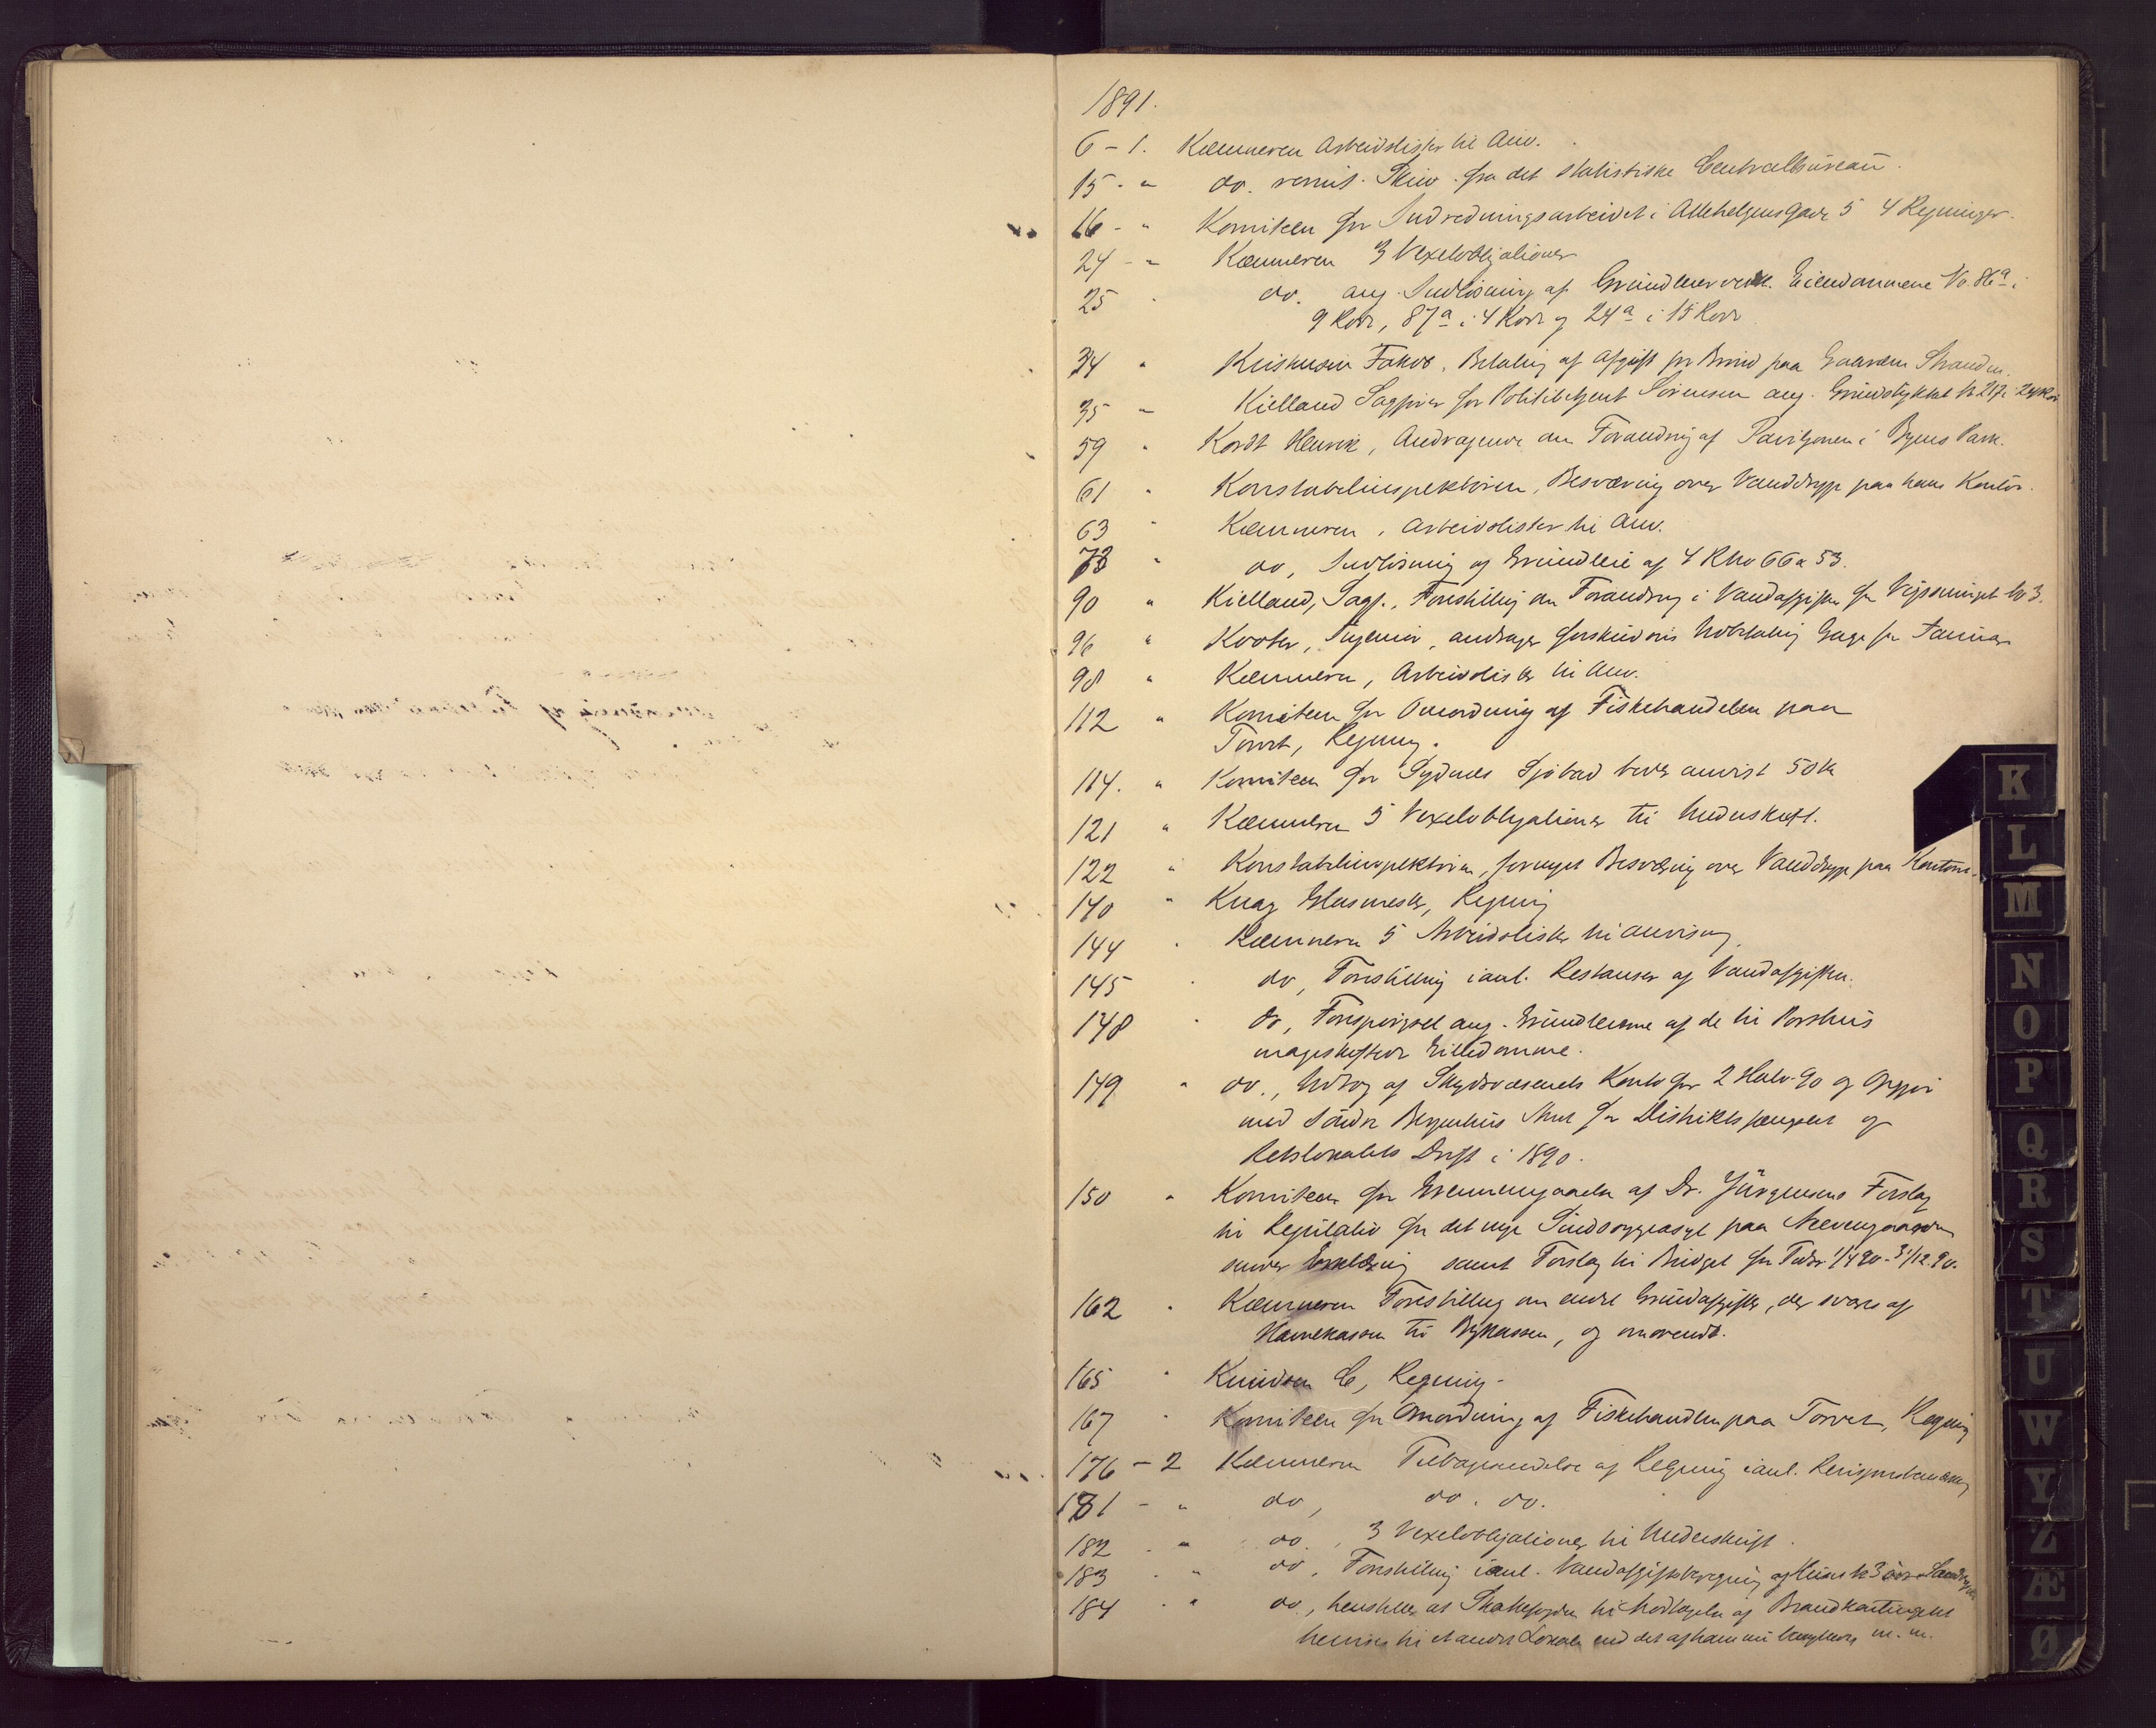 1891.
6 - 1. Kæmneren Arbeidslister til Anv.
15 - " do. remit. Skriv. fra det statistiske Centralbureau.
16 - " Komiteen for Indredningsarbeidet i Allehelgensgade 5 4 Regninger.
24 - " Kæmneren 3 Vexelobligationer
25 " do. ang. Indløsning af Grundleier vedk. Eiendommene No. 86a i
9 Rode, 87a i 4 Rode og 24a i 15 Rode
34 " Kristensen Jakob, Betaling af Afgift for Brønd paa Gaarden Stranden.
35 " Kielland Sagfører for Politibetjent Sørensen ang. Grundstykket No 217 i 24 Rode
59 " Kordt Henrik, Andragende om Forandring af Pavillonen i Byens Park.
61 " Konstabelinspektøren, Besværing over Vanddryp paa hans Kontor.
63 " Kæmneren, Arbeidslister til Anv.
73 " do, Indløsning og Grundleie af 4 R No 66 a 53.
90 " Kielland, Sagf., Forestilling om Forandring i Vandafgiften for No 3.
96 " Kooter, Ingeniør, andrager forskudsvis Udbetaling Gage for Januar
98 " Kæmneren, Arbeidslister til Anv.
112 " Komiteen for Omordning af Fiskehandelen paa
Torvet, Regning.
114. " Komiteen for Sydnes Sjøbad anvist 50 Kr
121 " Kæmneren 5 Vexelobligationer til Underskrift.
122 " Konstabelinspektøren, fornyet Besværing over Vanddryp paa Kontoret.
140 " Knag Glasmester, Regning
144 " Kæmneren 5 Arbeidslister til Anvisning.
145 " do, Forestilling i anl. Restanser af Vandafgiften.
148 " do, Forespørgsel ang. Grundleierne af de til Porshus
mageskiftede Eiendomme.
149 " do., Udtog af Skydsvæsenets Konto for 2 Halv. 90 og Opgjør
med Søndre Bergenhus Amt for Distriktsfængslet og
Retslokalets Drift i 1890.
150 " Komiteen for Gjennemgaaelse af Dr. Jürgensens Forslag
til Regulativ for det nye Sindssygeasyl paa Neevengaarden
sender Erklæring samt Forslag til Budget for Tiden 1/4 90 - 31/12 90.
162 " Kæmneren Forestilling om endel Grundafgifter, der svares af
Havnekassen til Bykassen, og omvendt.
165 " Knudsen C, Regning.
167 " Komiteen for Omordning af Fiskehandlen paa Torvet, Regning
176 - 2 Kæmneren Tilbagesendelse af Regning i anl. Revisionsbemærkn
181 - " do, do. do.
182 - " do., 3 Vexelobligationer til Underskrift.
183 - " do, Forestilling i anl. Vandafgiftsberegning af Huset No 3
184 - " do., henstiller at Skattefogden til Modtagelse af Brandkontingent
henvises til et andet Lokale end det af ham nu benyttede m. m.
K
L
M
N
O
P
Q
R
S
T
U
W
Y
Z
Æ
Ø